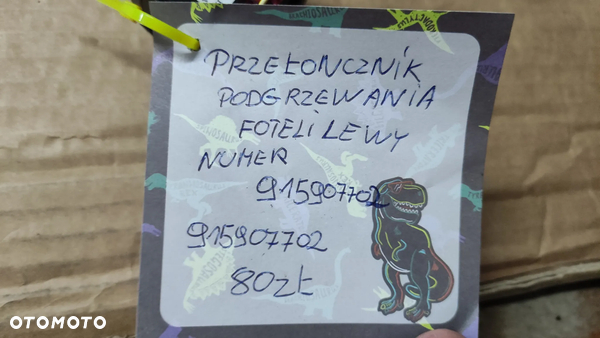 PRZEŁONCZNIK
PODGRZEWANIA
FOTELI LEWY
NUMER
915907702
915907702
80zł
OTOMOTO